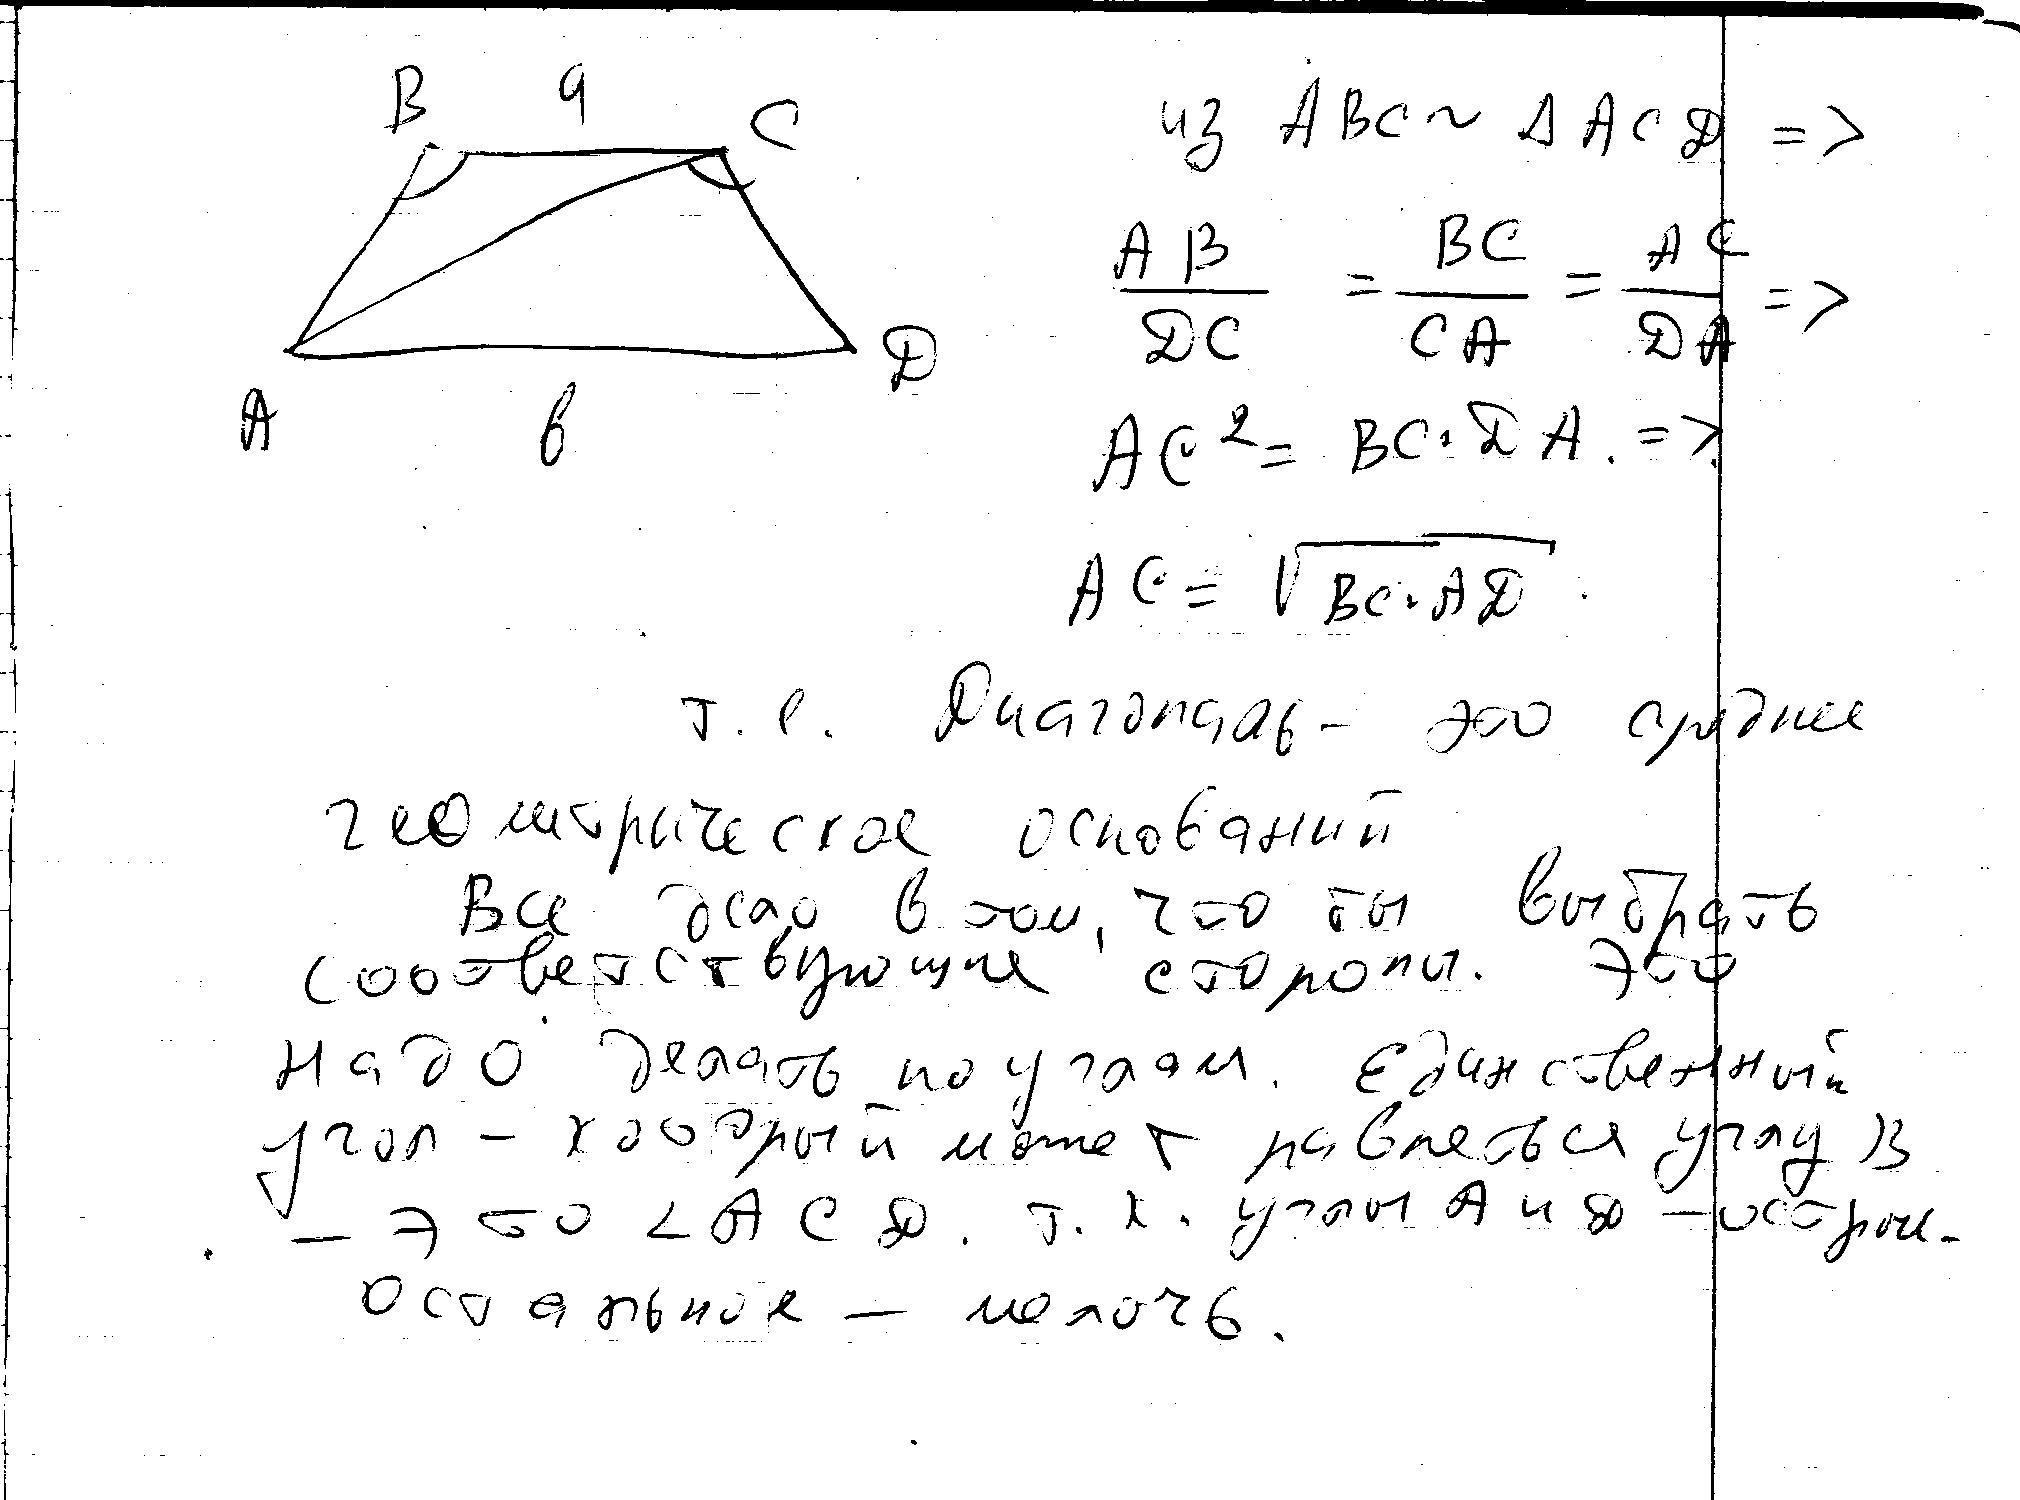 B a C
A в D
из ABC ~ Δ ACD =>
AB/DC = BC/CA = AC/DA =>
AC² = BC · DA. =>
AC = √BC · AD
т.е. Диагональ - это среднее
геометрическое оснований
Все дело в том, что ты выбрать
соответствующие стороны. Это
надо делать по углам. Единственный
угол – который может равняться углу B
– это ∠ACD. т.к. углы A и D – острые.
Остальное – мелочь.